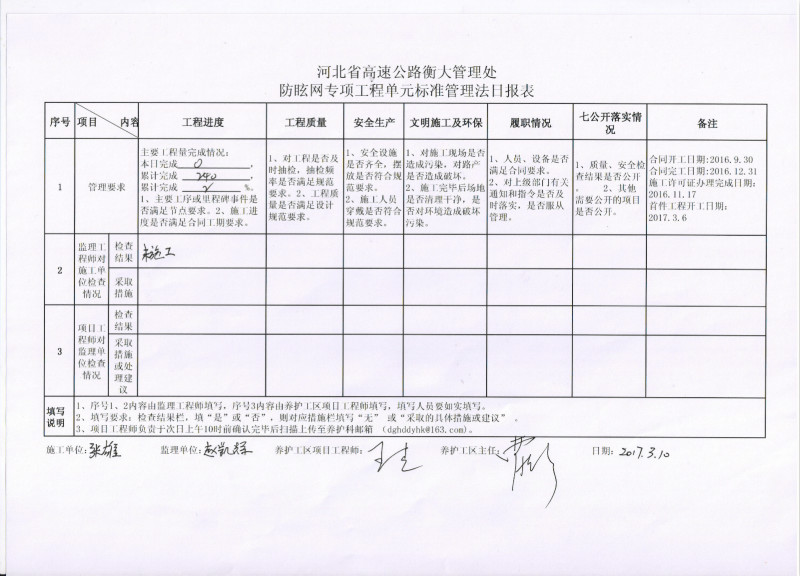 河北省高速公路衡大管理处
防眩网专项工程单元标准管理法日报表
序号 项目 内容 工程进度 工程质量 安全生产 文明施工及环保 履职情况 七公开落实情况 备注
1 管理要求
主要工程量完成情况:
本日完成 0 ,
累计完成 240 ,
累计完成 2 %。
1、主要工序或里程碑事件是
否满足节点要求。2、施工进
度是否满足合同工期要求。
1、对工程是否及
时抽检，抽检频
率是否满足规范
要求。2、工程质
量是否满足设计
规范要求。
1、安全设施
是否齐全，摆
放是否符合规
范要求。
2、施工人员
穿戴是否符合
规范要求。
1、对施工现场是否
造成污染，对路产
是否造成破坏。
2、施工完毕后场地
是否清理干净，是
否对环境造成破坏
污染。
1、人员、设备是否
满足合同要求。
2、对上级部门有关
通知和指令是否及
时落实，是否服从
管理。
1、质量、安全检
查结果是否公开
。 2、其他
需要公开的项目
是否公开。
合同开工日期:2016.9.30
合同完工日期:2016.12.31
施工许可证办理完成日期:
2016.11.17
首件工程开工日期:
2017.3.6
2 监理工程师对施工单位检查情况 检查结果 未施工
采取措施
3 项目工程师对监理单位检查情况 检查结果
采取措施或处理建议
填写说明
1、序号1、2内容由监理工程师填写，序号3内容由养护工区项目工程师填写，填写人员要如实填写。
2、填写要求：检查结果栏，填“是”或“否”，则对应措施栏填写“无” 或“采取的具体措施或建议” 。
3、项目工程师负责于次日上午10时前确认完毕后扫描上传至养护科邮箱 （dghddyhk@163.com)。
施工单位: 张雄 监理单位: 赵凯 养护工区项目工程师: 养护工区主任: 日期: 2017.3.10